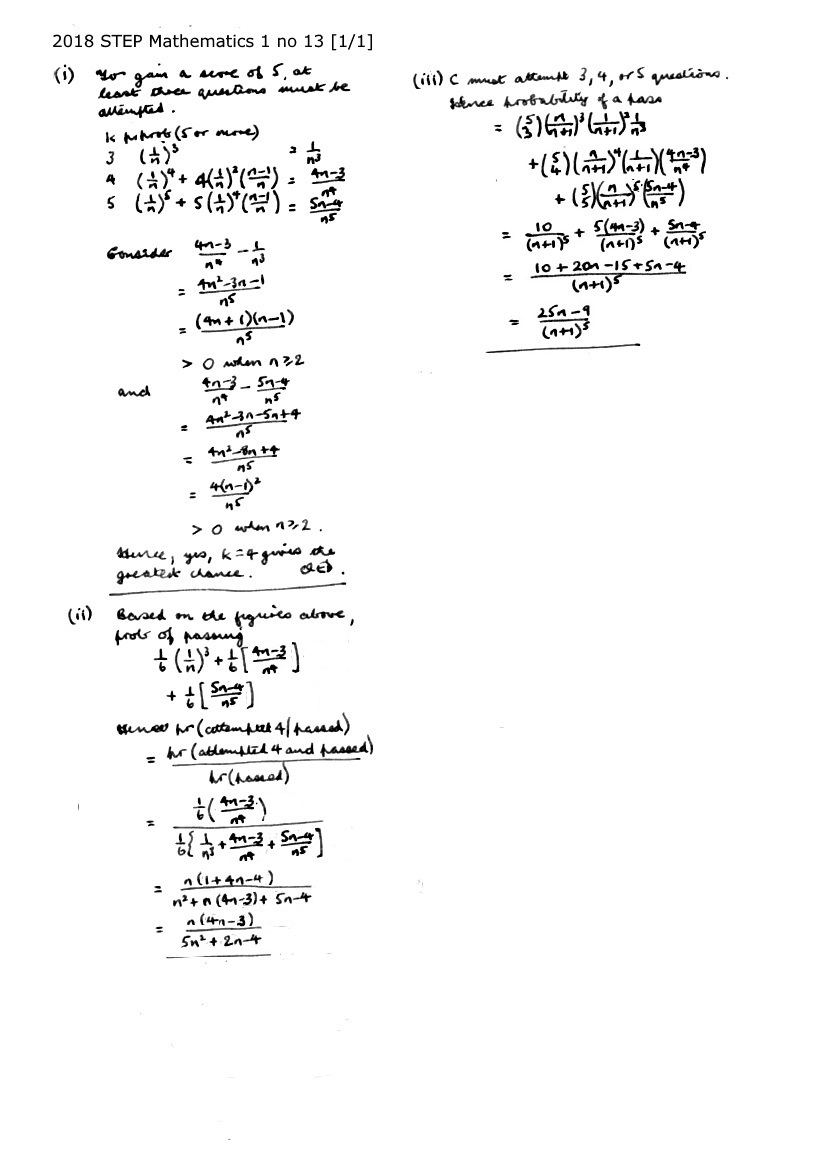 2018 STEP Mathematics 1 no 13 [1/1]
(i) To gain a score of 5, at
least three questions must be
attempted.
k prob (5 or more)
3 (1/n)³ = 1/n³
4 (1/n)⁴ + 4(1/n)³((n-1)/n) = (4n-3)/n⁴
5 (1/n)⁵ + 5(1/n)⁴((n-1)/n) = (5n-4)/n⁵
Consider (4n-3)/n⁴ - 1/n³
= (4n²-3n-1)/n⁵
= ((4n+1)(n-1))/n⁵
> 0 when n ≥ 2
and (4n-3)/n⁴ - (5n-4)/n⁵
= (4n²-3n-5n+4)/n⁵
= (4n²-8n+4)/n⁵
= 4(n-1)²/n⁵
> 0 when n ≥ 2.
Hence, yes, k=4 gives the
greatest chance. QED.
(ii) Based on the figures above,
prob of passing
1/6 (1/n)³ + 1/6 [(4n-3)/n⁴]
+ 1/6 [(5n-4)/n⁵]
Hence pr (attempted 4 | passed)
= pr (attempted 4 and passed) / pr (passed)
= 1/6 ((4n-3)/n⁴) / 1/6 {1/n³ + (4n-3)/n⁴ + (5n-4)/n⁵]
= n(1+4n-4) / (n² + n(4n-3) + 5n-4)
= n(4n-3) / (5n²+2n-4)
(iii) C must attempt 3, 4, or 5 questions.
Hence probability of a pass
= (5 3)(n/(n+1))³(1/(n+1))² 1/n³
+ (5 4)(n/(n+1))⁴(1/(n+1))((4n-3)/n⁴)
+ (5 5)(n/(n+1))⁵((5n-4)/n⁵)
= 10/(n+1)⁵ + 5(4n-3)/(n+1)⁵ + (5n-4)/(n+1)⁵
= (10+20n-15+5n-4)/(n+1)⁵
= (25n-9)/(n+1)⁵